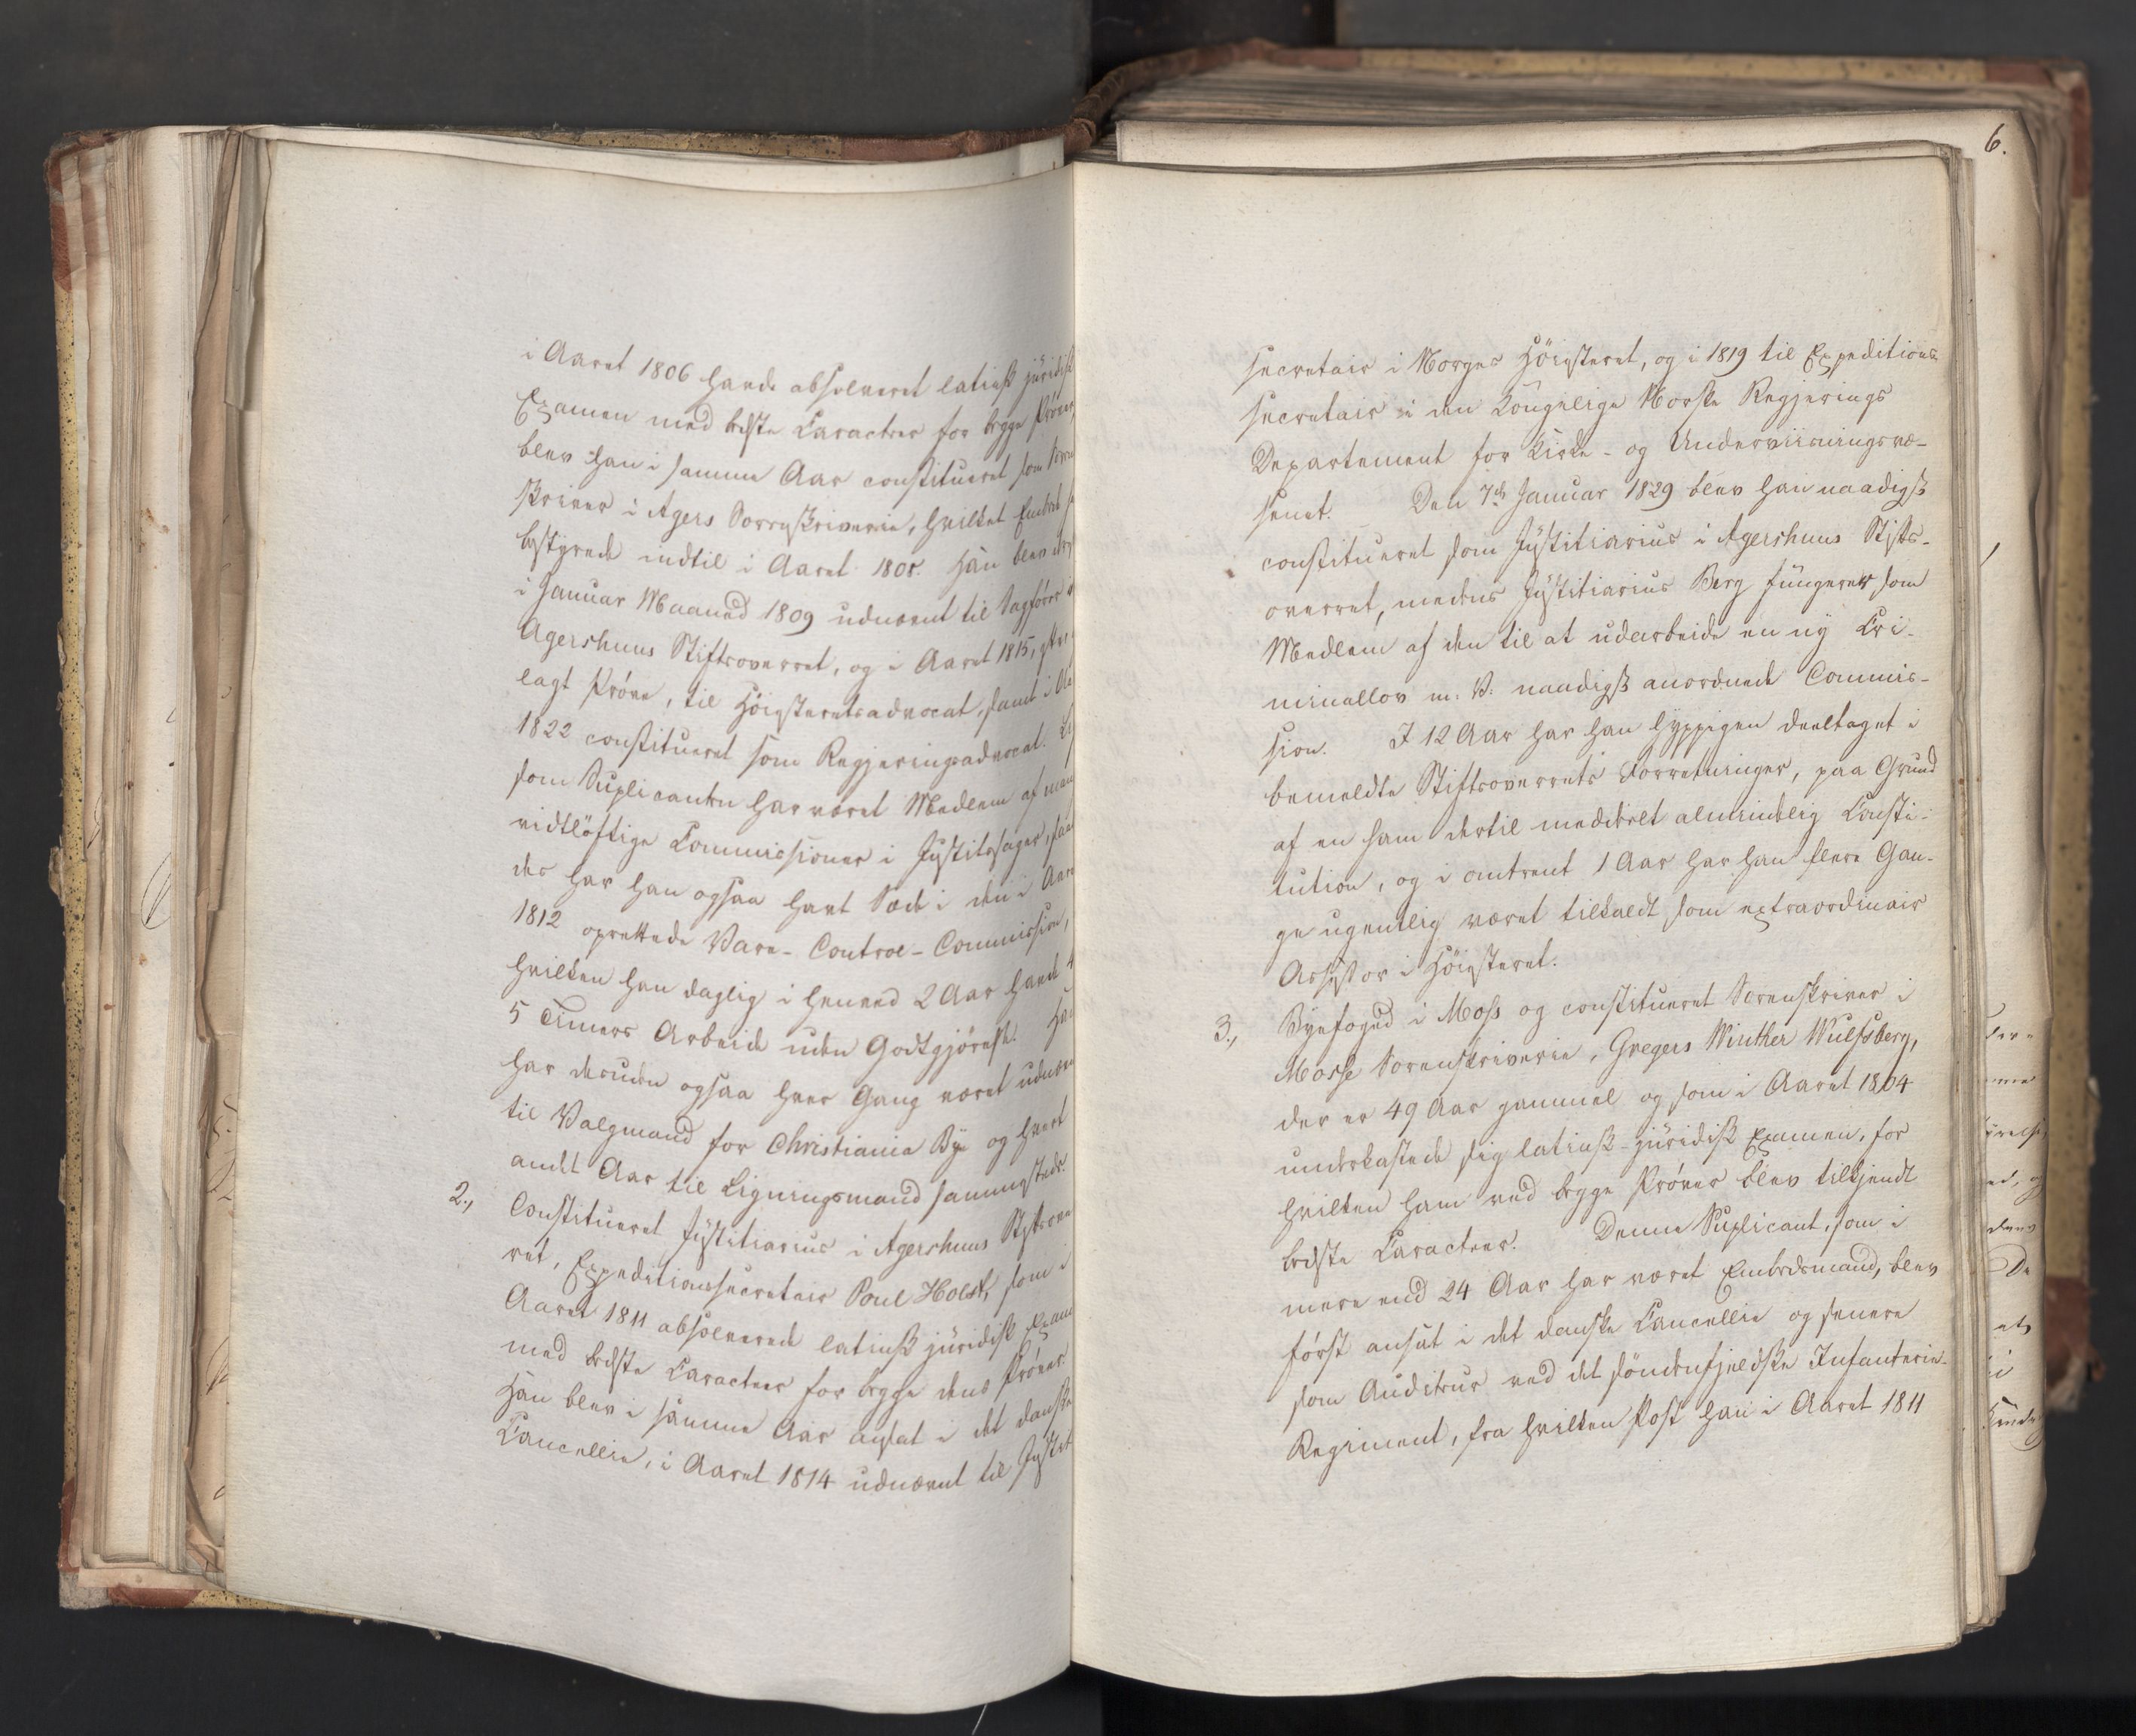 i Aaret 1806 havde absolveret latinsk juridisk
Examen med bedste Caracteer for begge Prøver,
blev han i samme Aar constitueret som Soren
skriver i Agers Sorenskriverie, hvilket Embede
bestyrede indtil i Aaret 1808. Han blev
i Januar Maaned 1809 udnævnt til Sagfører
Agershuus Stiftsoverret, og i Aaret 1815,
lagt Prøve, til Høiesteretsadvocat, samt i
1822 constitueret som Regjeringsadvocat.
som Suplicanten har været Medlem af
vidtløftige Commissioner i Justitssager,
des har han ogsaa havt Sæde i den i Aaret
1812 oprettede Vare-Control-Commission,
hvilken han daglig i henved 2 Aar havde 4
5 Timers Arbeide uden Godtgjørelse. Han
har desuden ogsaa hver Gang været udnævnt
til Valgmand for Christiania Bye og hvert
andet Aar til Ligningsmand sammesteds.
2., Constitueret Justitiarius i Agershuus Stiftsover
ret, Expeditionssecretair Poul Holst, som i
Aaret 1811 absolverede latinsk juridisk Examen
med bedste Caracteer for begge dens Prøver.
Han blev i samme Aar ansat i det danske
Cancellie, i Aaret 1814 udnævnt til Justits
6.
secretair i Norges Høiesteret, og i 1819 til Expeditions
secretair i den Kongelige Norske Regjerings
Departement for Kirke- og Underviisningsvæ-
senet. Den 7de Januar 1829 blev han naadigst
constitueret som Justitiarius i Agershuus Stifts-
overret, medens Justitiarius Berg fungerer som
Medlem af den til at udarbeide en ny Cri-
minallov m: V: naadigst anordnede Commis-
sion. I 12 Aar har han hyppigen deeltaget i
bemeldte Stiftsoverrets Forretninger, paa Grund
af en ham dertil meddeelt almindelig Consti-
tution, og i omtrent 1 Aar har han flere Gan-
ge ugentlig været tilkaldt som extraordinair
Assessor i Høiesteret.
3., Byefoged i Moss og constitueret Sorenskriver i
Mosse Sorenskriverie, Gregers Winther Wulfsberg,
der er 49 Aar gammel og som i Aaret 1804
underkastede sig latinsk-juridisk Examen, for
hvilken ham ved begge Prøver blev tilkjendt
bedste Caracteer. Denne Suplicant, som i
mere end 24 Aar har været Embedsmand, blev
først ansat i det danske Cancellie og senere
som Auditeur ved det søndenfjeldske Infanterie-
Regiment, fra hvilken Post han i Aaret 1811